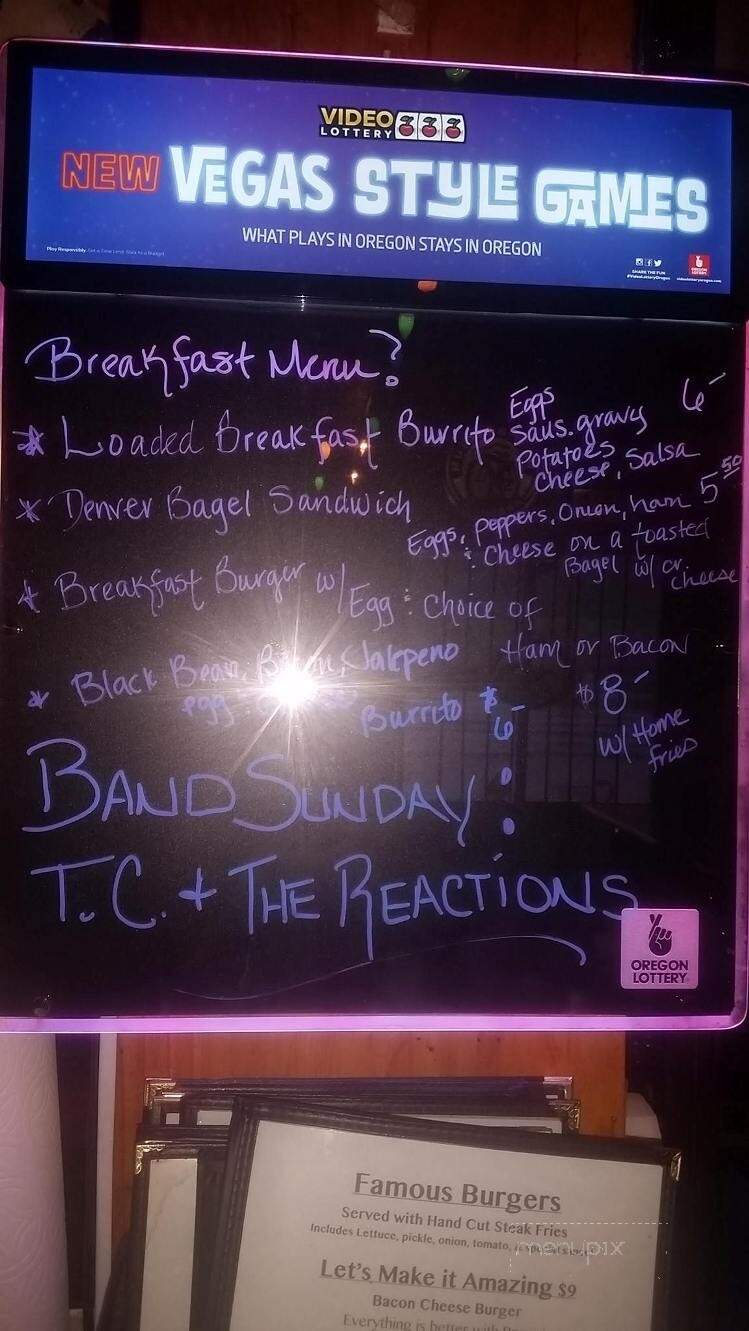 VIDEO
LOTTERY
NEW VEGAS STYLE GAMES
WHAT PLAYS IN OREGON STAYS IN OREGON
Play Responsibly.
SHARE THE FUN
OREGON
LOTTERY
Breakfast Menu?
* Loaded Breakfast Burrito Eggs 6-
saus. gravy
Potatoes
Cheese, Salsa
* Denver Bagel Sandwich
Eggs, peppers, Onion, ham 5 50
: Cheese on a toasted
Bagel w/ cr. cheese
* Breakfast Burger w/ Egg : Choice of
Ham or Bacon
$8-
w/ Home
fries
* Black Bean, Jalepeno
egg
Burrito $6-
BAND SUNDAY:
T.C. + THE REACTIONS
OREGON
LOTTERY
Famous Burgers
Served with Hand Cut Steak Fries
Includes Lettuce, pickle, onion, tomato,
menupix
Let's Make it Amazing $9
Bacon Cheese Burger
Everything is better with